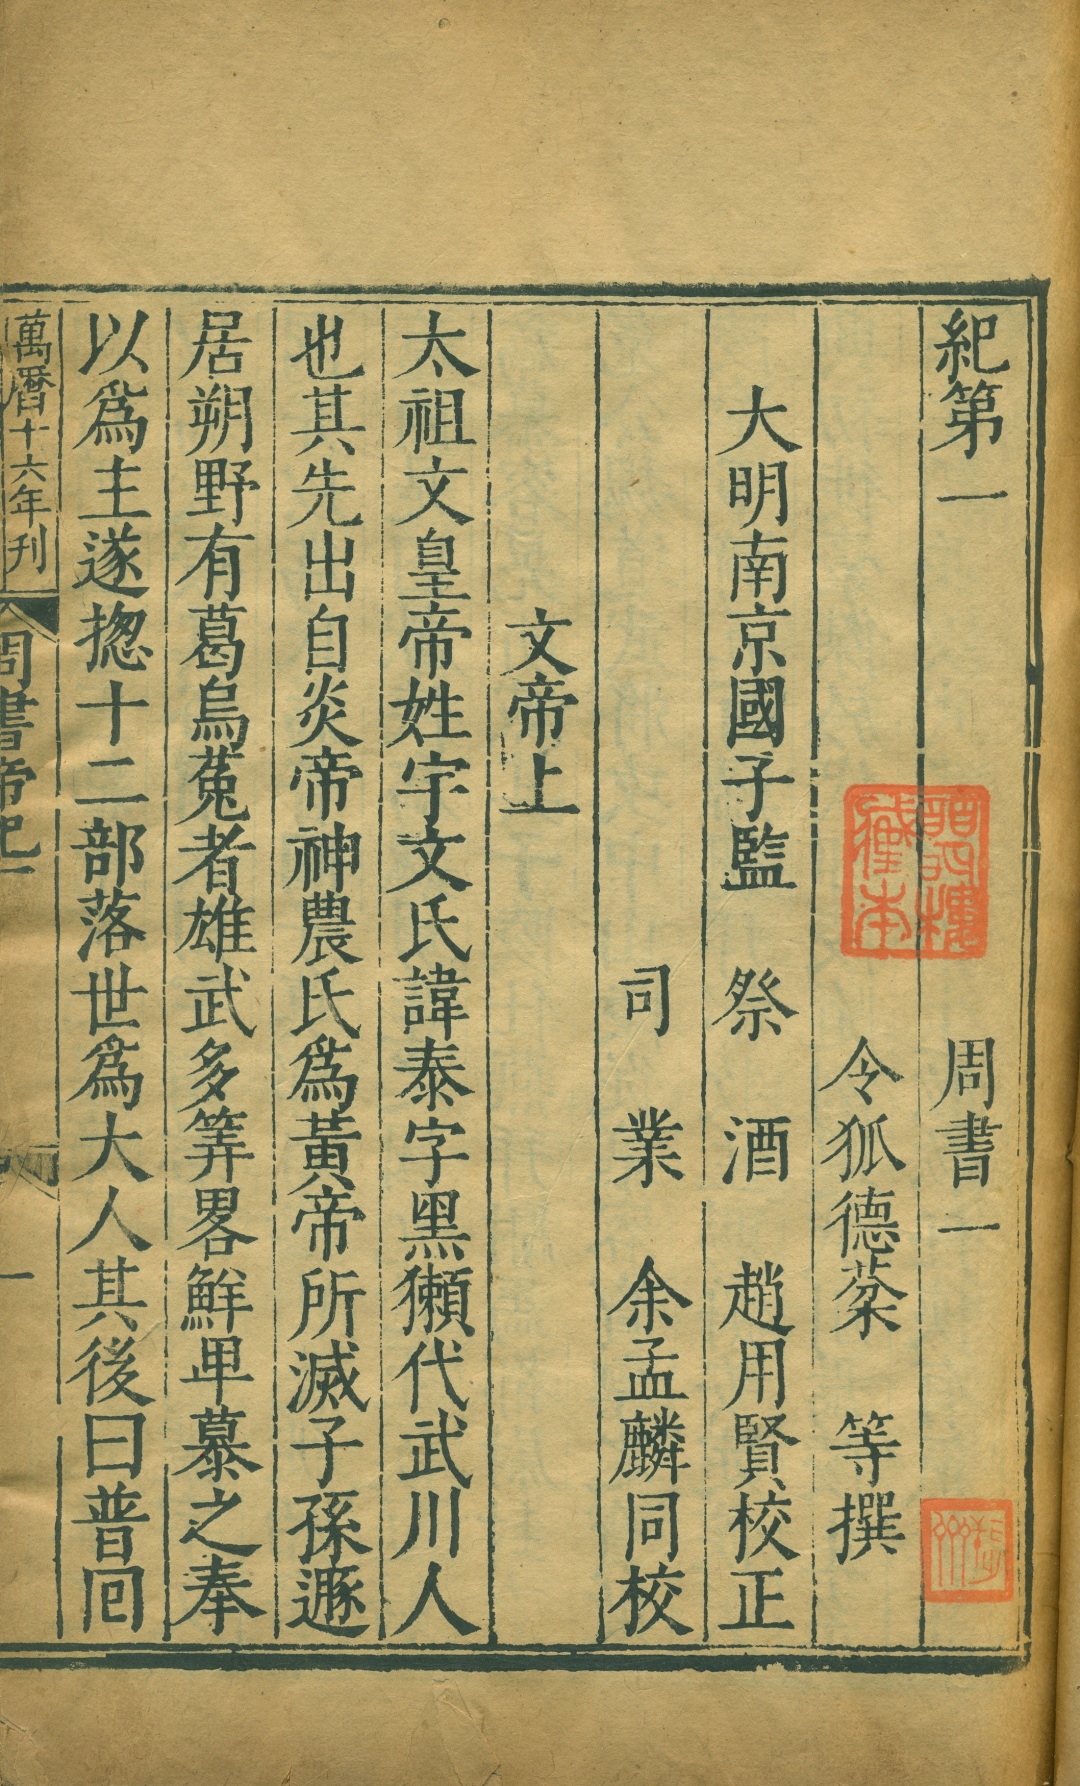 紀第一 周書一
令狐德棻 等撰
大明南京國子監 祭酒 趙用賢校正
司業 余孟麟同校
文帝上
太祖文皇帝姓宇文氏諱泰字黑獺代武川人
也其先出自炎帝神農氏為黃帝所滅子孫遯
居朔野有葛烏菟者雄武多筭畧鮮卑慕之奉
以為主遂揔十二部落世為大人其後曰普回
萬曆十六年刊
周書帝紀一
一
藏本